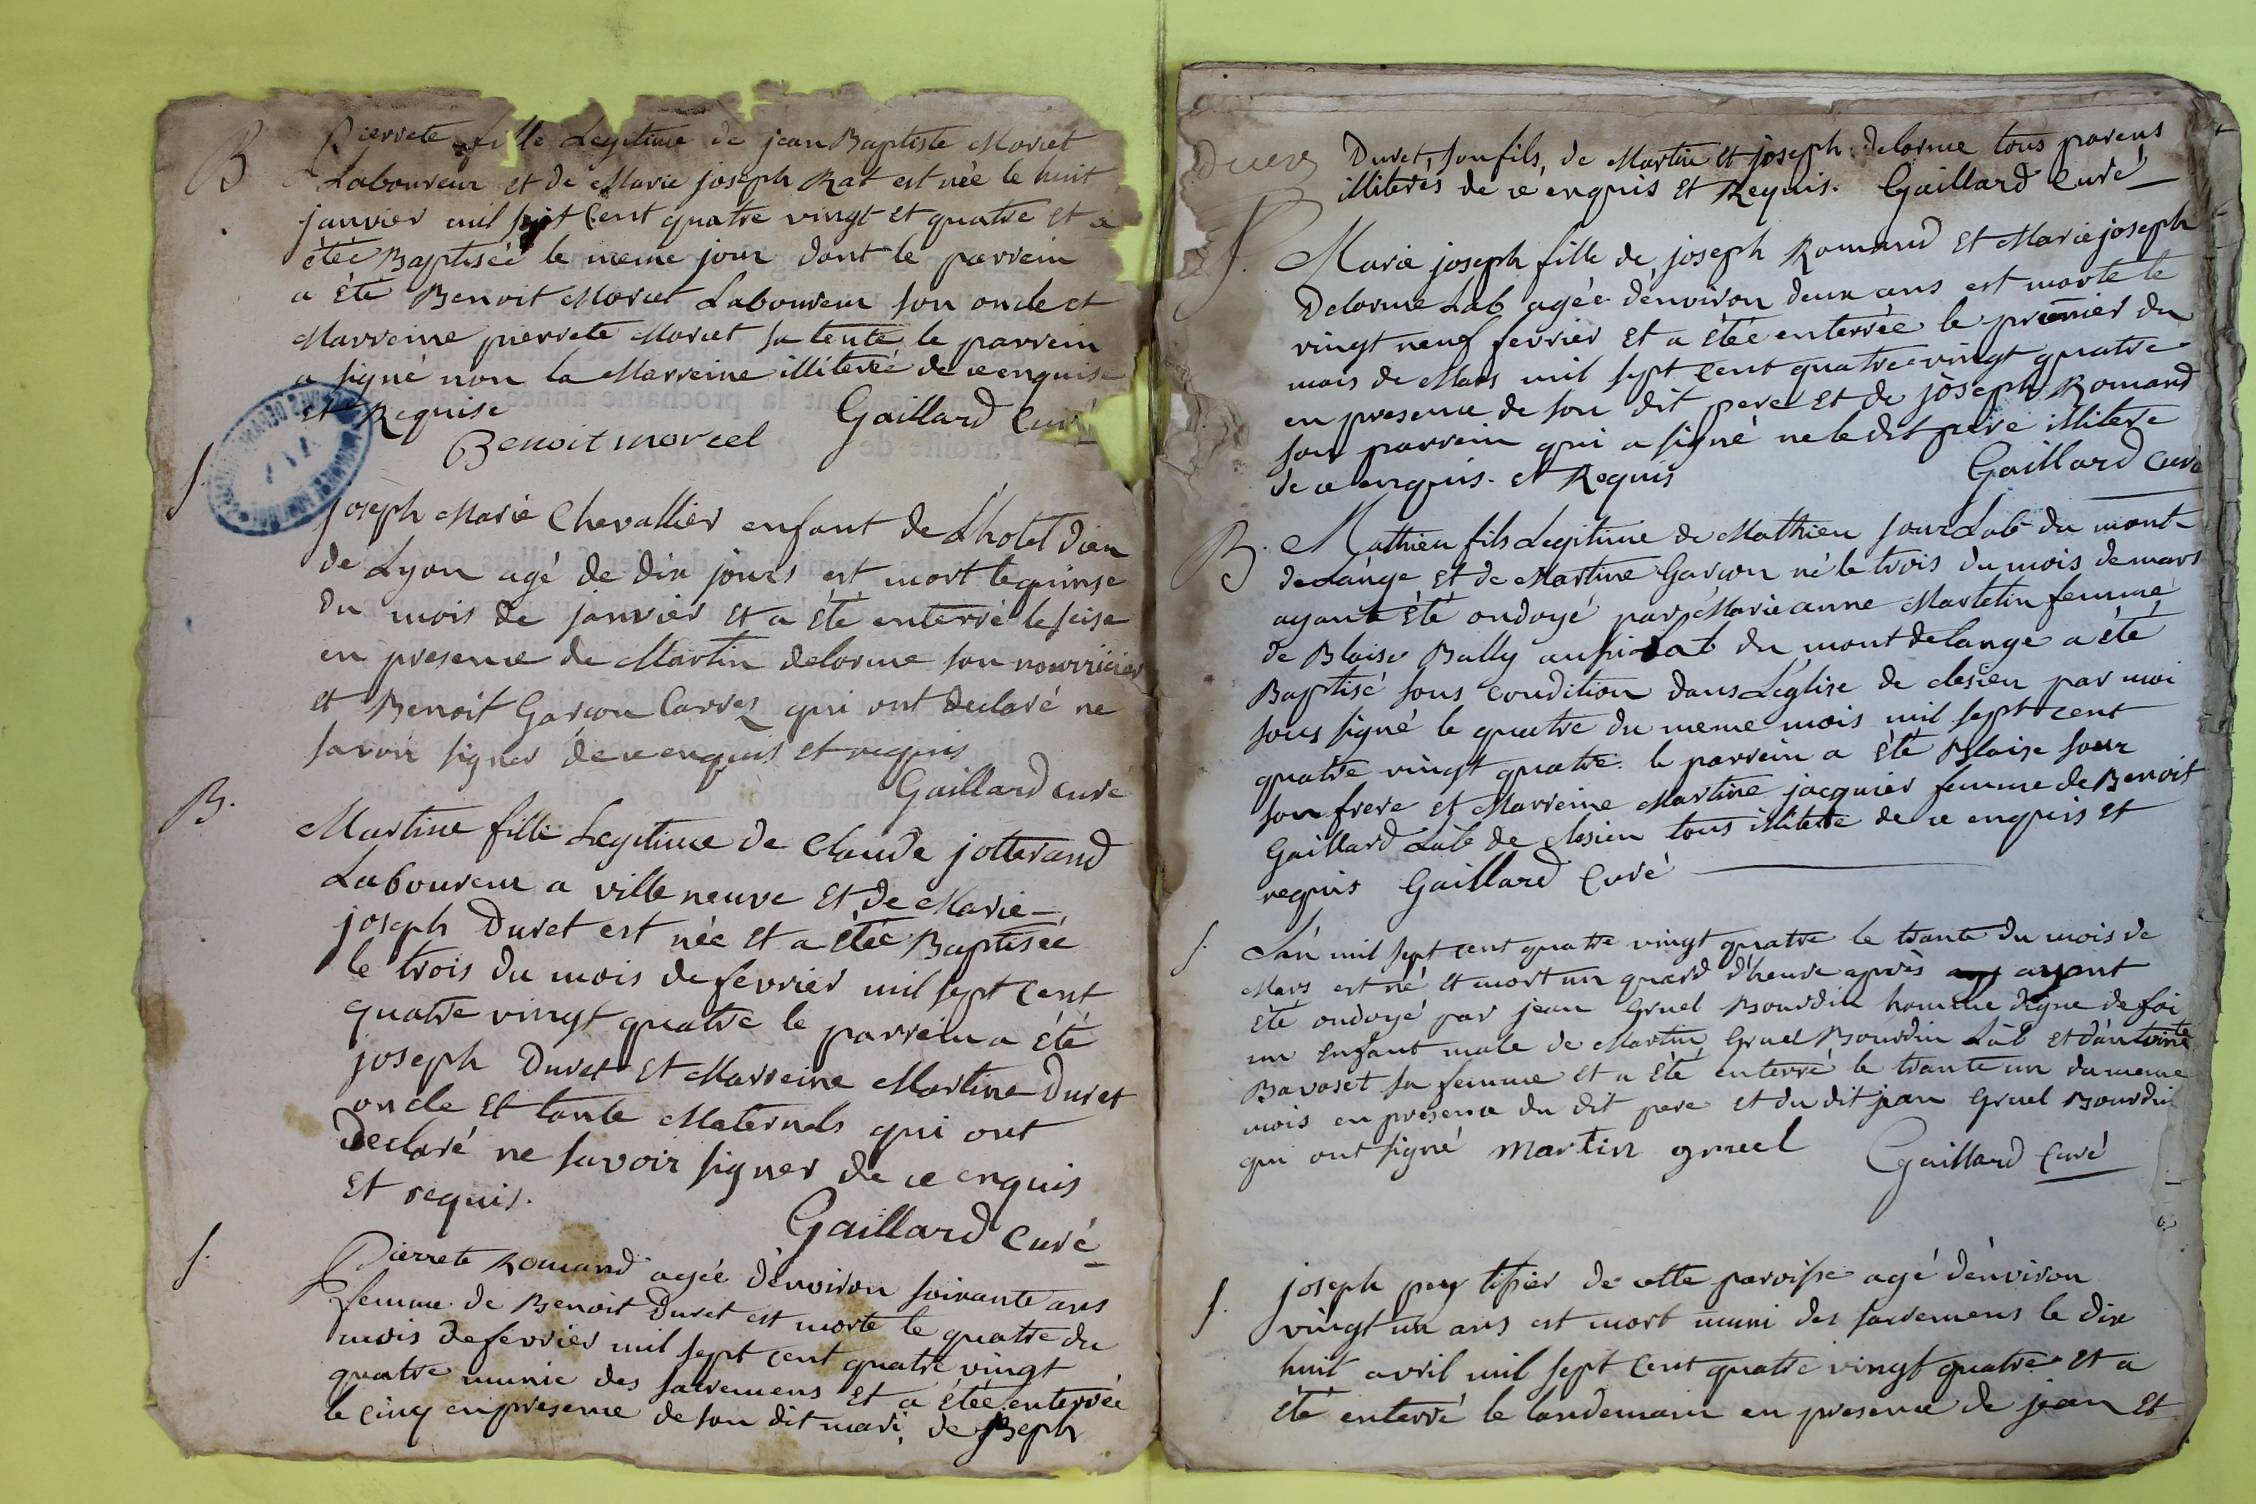 B Pierrete fille Legitime de jean Baptiste Moriet
Laboureur et de Marie joseph Rat est née le huit
janvier mil sept Cent quatre vingt et quatre et a
étée Baptisée le meme jour dont le parrein
a été Benoit Moriet Laboureur son oncle et
Marreine pierrete Moriet sa tente le parrein
a signé non la Marreine illiterée de ce enquise
et Requise Gaillard Curé
Benoit morcel
S. joseph Marie Chevallier enfant de L'hotel dieu
de Lyon agé de dix jours est mort le quinse
du mois de janvier et a été enterré le seise
en presence de Martin delorme son nourricier
et Benoit Garcon Carrez qui ont declaré ne
savoir signer de ce enquis et requis
Gaillard curé
B. Martine fille Legitime de Claude jotterand
Laboureur a ville neuve et de Marie
joseph Duret est née et a étée Baptisée
le trois du mois de fevrier mil sept Cent
quatre vingt quatre le parrein a été
joseph Duret et Marreine Martine Duret
oncle et tante Maternels qui ont
declaré ne savoir signer de ce enquis
et requis.
Gaillard Curé
S. Pierrete Romand agée d'environ soixante ans
femme de Benoit Duret est morte le quatre du
mois de fevrier mil sept cent quatre vingt
quatre munie des sacremens et a étée enterrée
le cinq en presence de son dit mari, de joseph
Duret, son fils, de Martin et joseph delorme tous parens
illiterés de ce enquis et Requis. Gaillard Curé
S. Marie joseph fille de joseph Romand et Marie joseph
Delorme Lab agée d'environ deux ans est morte le
vingt neuf fevrier et a étée enterrée le premier du
mois de Mars mil sept Cent quatre vingt quatre
en presence de son dit pere et de joseph Romand
son parrein qui a signé ne le dit pere illitere
de ce enquis. et Requis
Gaillard curé
B. Mathieu fils Legitime de Mathieu sour Lab du mont
delange et de Martine Garcon né le trois du mois de mars
ayant été ondoyé par Marie anne Martetin femme
de Blaise Bally aussi Lab du mont delange a été
Baptisé sous condition dans L'église de clesieu par moi
sous signé le quatre du meme mois mil sept cent
quatre vingt quatre. le parrein a été Blaise sour
son frere et Marreine Martine jacquier femme de Benoit
Gaillard Lab de clesieu tous illitere de ce enquis et
requis Gaillard Curé
S. L'an mil sept cent quatre vingt quatre le trante du mois de
Mars est né et mort un quard d'heure après ayant
été ondoyé par jean Gruel Bourdin homme digne de foi
un enfant male de Martin Gruel Bourdin Lab et d'antoinete
Bavoset sa femme et a été enterré le trante un du meme
mois en presence du dit pere et du dit jean Gruel Bourdin
qui ont signé martin gruel Gaillard Curé
S. joseph pey tissier de cette paroisse agé d'environ
vingt un ans est mort muni des sacremens le dix
huit avril mil sept Cent quatre vingt quatre et a
été enterré le landemain en presence de jean et